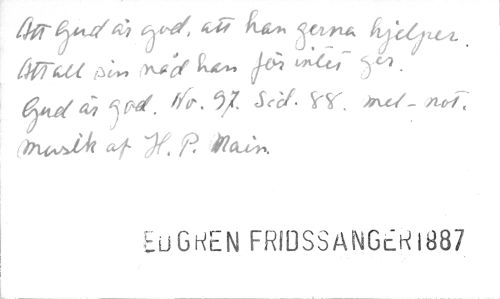 Att Gud är god, att han gerna hjelper.
Att all sin nåd han för intet ger.
Gud är god. No. 97. Sid. 88. mel-not.
musik af H. P. Main.
EDGREN FRIDSSANGER 1887